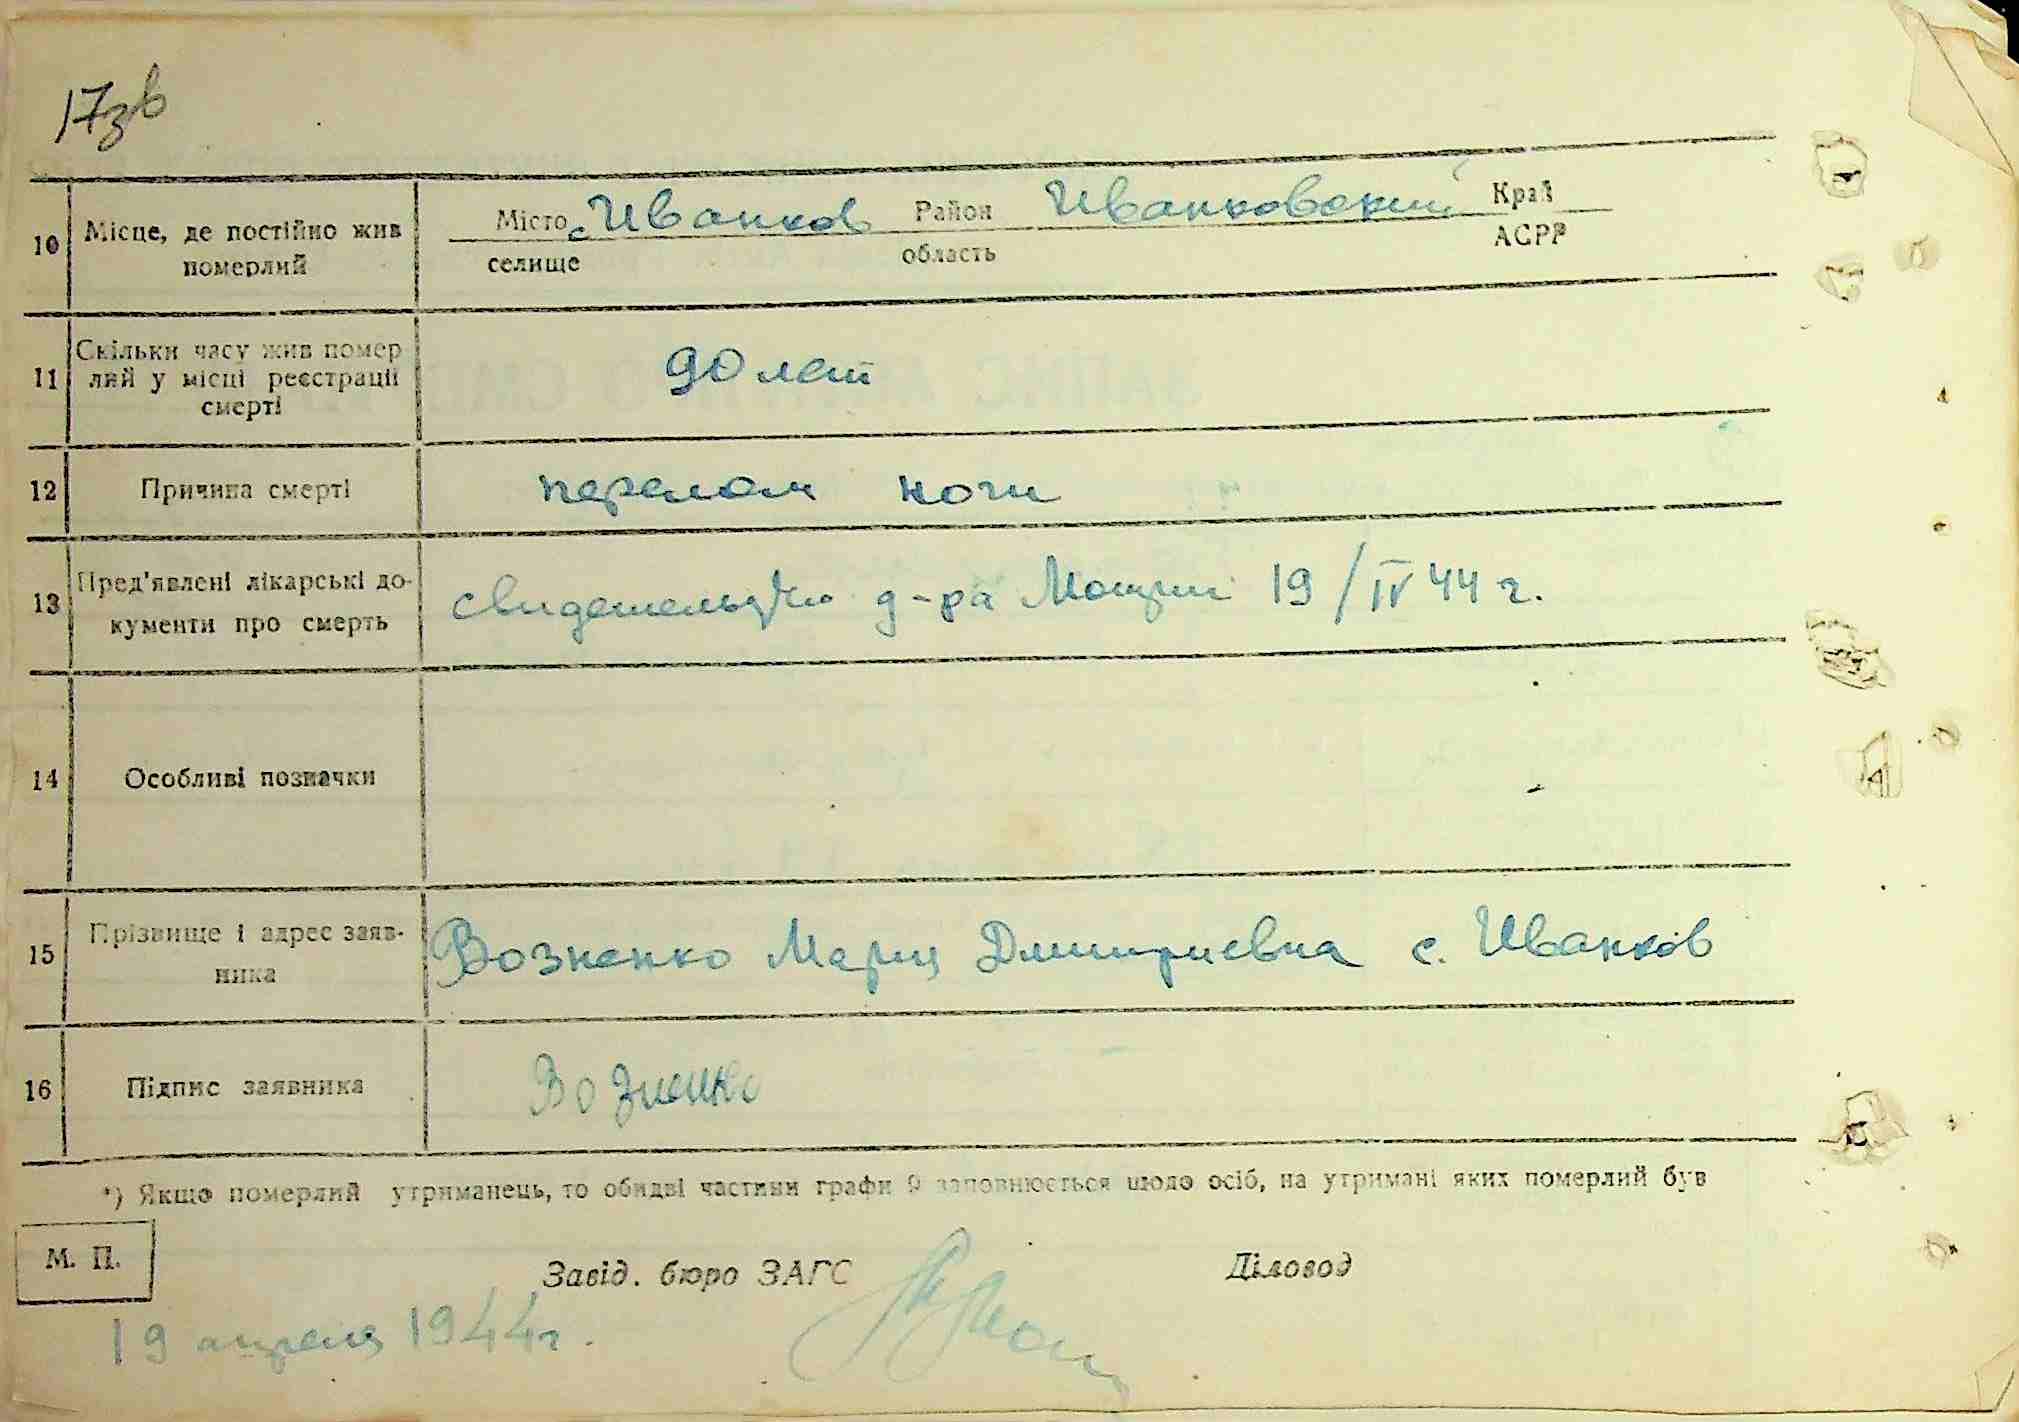 17зв
10 Місце, де постійно жив померлий
Місто с. Иванков Район Иванковский Край
селище область АСРР
11 Скільки часу жив помер
лий у місці реєстрації
смерті
90 лет
12 Причина смерті
перелом ноги
13 Пред'явлені лікарські до-
кументи про смерть
свидетельство д-ра 19/IV 44 г.
14 Особливі позначки
15 Прізвище і адрес заяв-
ника
Возненко Мария Дмитриевна с. Иванков
16 Підпис заявника
Возненко
*) Якщо померлий утриманець, то обидві частини графи 9 заповнюється щодо осіб, на утримані яких померлий був
М. П.
Завід. бюро ЗАГС Діловод
19 апреля 1944 г.